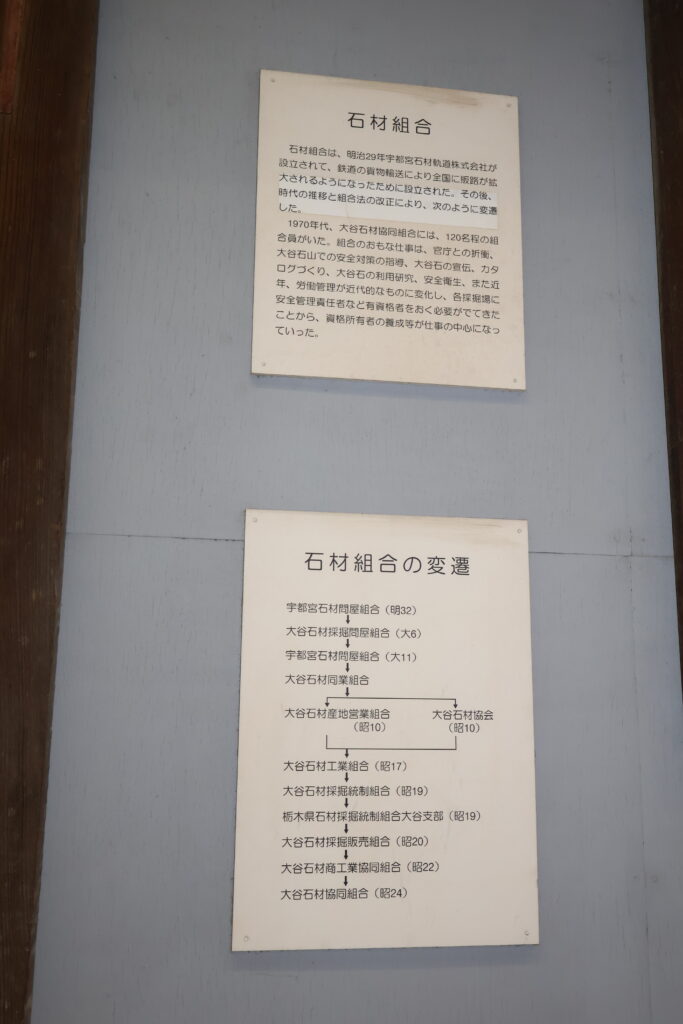 石材組合
石材組合は、明治29年宇都宮石材軌道株式会社が
設立されて、鉄道の貨物輸送により全国に販路が拡
大されるようになったために設立された。その後、
時代の推移と組合法の改正により、次のように変遷
した。
1970年代、大谷石材協同組合には、120名程の組
合員がいた。組合のおもな仕事は、官庁との折衝、
大谷石山での安全対策の指導、大谷石の宣伝、カタ
ログづくり、大谷石の利用研究、安全衛生、また近
年、労働管理が近代的なものに変化し、各採掘場に
安全管理責任者など有資格者をおく必要がでてきた
ことから、資格所有者の養成等が仕事の中心になっ
ていった。
石材組合の変遷
宇都宮石材問屋組合（明32）
大谷石材採掘問屋組合（大6）
宇都宮石材問屋組合（大11）
大谷石材同業組合
大谷石材産地営業組合 大谷石材協会
（昭10） （昭10）
大谷石材工業組合（昭17）
大谷石材採掘統制組合（昭19）
栃木県石材採掘統制組合大谷支部（昭19）
大谷石材採掘販売組合（昭20）
大谷石材商工業協同組合（昭22）
大谷石材協同組合（昭24）